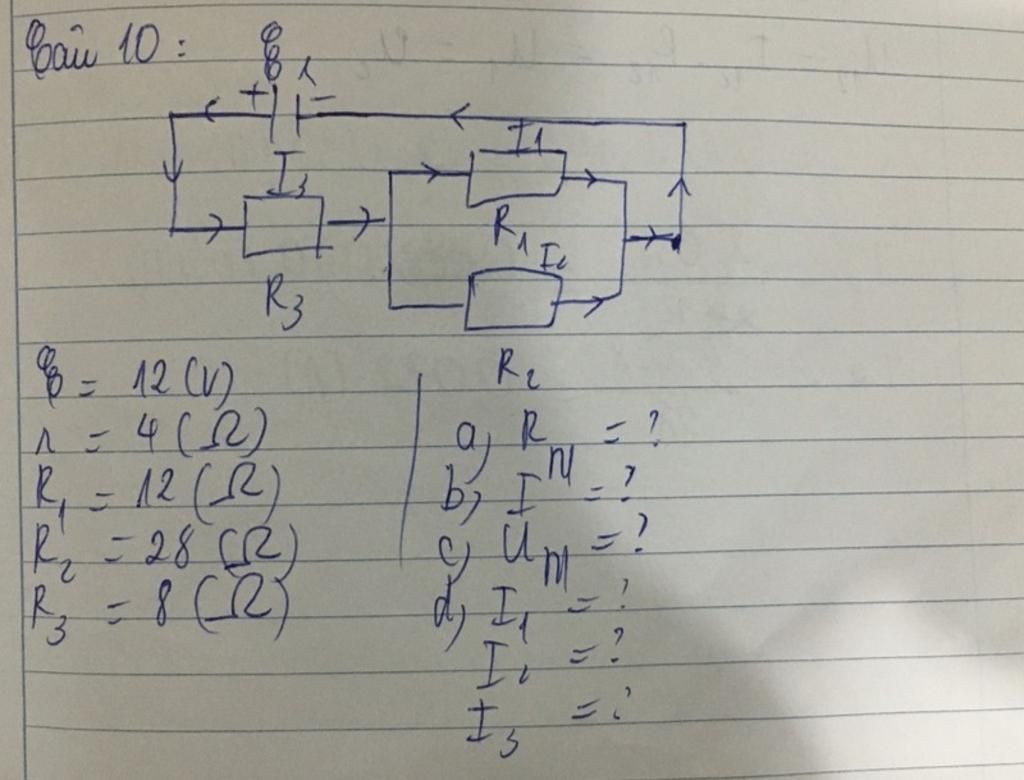 Bài 10 :
ℰ r
+ -
I₁
I₃
R₁ I₂
R₃
R₂
ℰ = 12 (V)
r = 4 (Ω)
R₁ = 12 (Ω)
R₂ = 28 (Ω)
R₃ = 8 (Ω)
a, R_m = ?
b, I = ?
c, U_m = ?
d, I₁ = ?
I₂ = ?
I₃ = ?